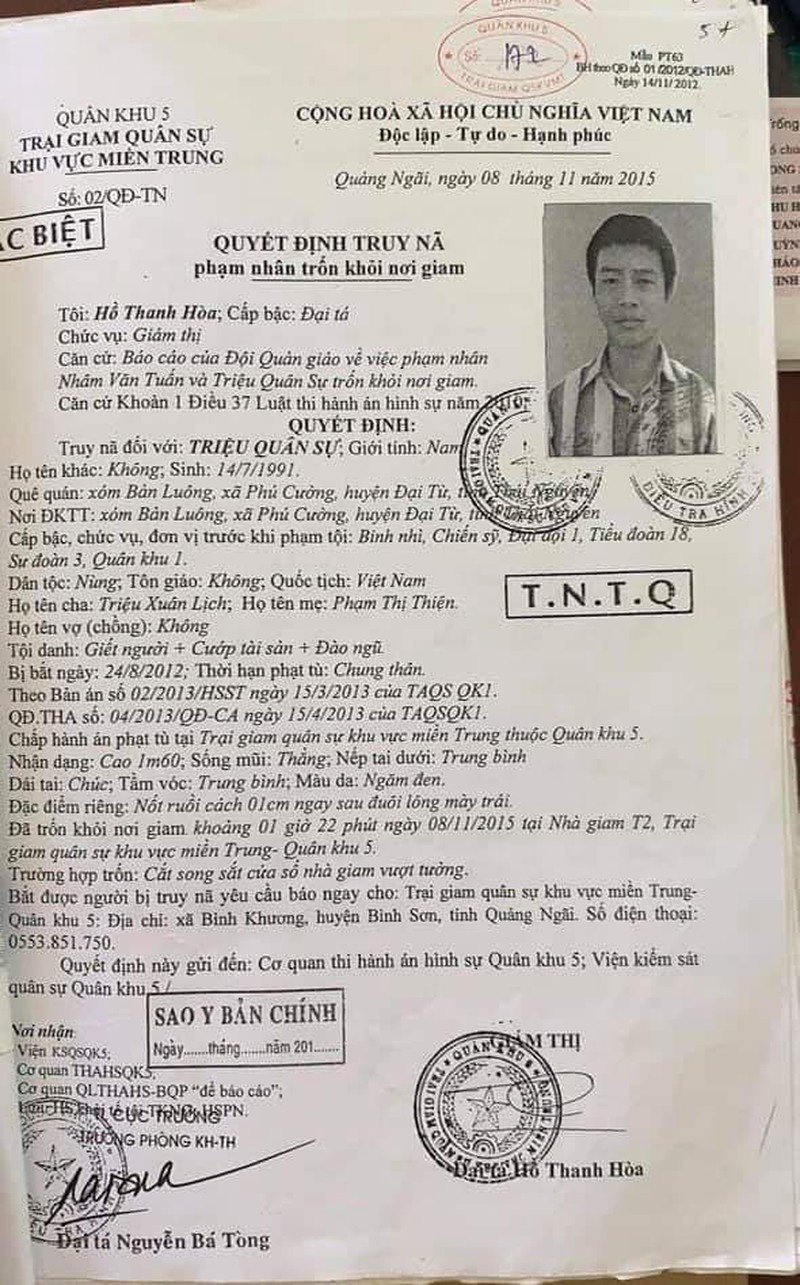 QUÂN KHU 5
Số: 172
TRẠI GIAM QSKVMT
5+
Mẫu PT63
BH theo QĐ số 01/2012/QĐ-THAH
Ngày 14/11/2012.
QUÂN KHU 5
TRẠI GIAM QUÂN SỰ
KHU VỰC MIỀN TRUNG
Số: 02/QĐ-TN
CỘNG HOÀ XÃ HỘI CHỦ NGHĨA VIỆT NAM
Độc lập - Tự do - Hạnh phúc
Quảng Ngãi, ngày 08 tháng 11 năm 2015
ẶC BIỆT
QUYẾT ĐỊNH TRUY NÃ
phạm nhân trốn khỏi nơi giam
Tôi: Hồ Thanh Hòa; Cấp bậc: Đại tá
Chức vụ: Giám thị
Căn cứ: Báo cáo của Đội Quản giáo về việc phạm nhân
Nhâm Văn Tuấn và Triệu Quân Sự trốn khỏi nơi giam.
Căn cứ Khoản 1 Điều 37 Luật thi hành án hình sự năm
QUYẾT ĐỊNH:
Truy nã đối với: TRIỆU QUÂN SỰ; Giới tính: Nam
Họ tên khác: Không; Sinh: 14/7/1991.
Quê quán: xóm Bản Luông, xã Phú Cường, huyện Đại Từ, tỉnh Thái Nguyên
Nơi ĐKTT: xóm Bản Luông, xã Phú Cường, huyện Đại Từ, tỉnh Thái Nguyên
Cấp bậc, chức vụ, đơn vị trước khi phạm tội: Binh nhì, Chiến sỹ, Đại đội 1, Tiểu đoàn 18,
Sư đoàn 3, Quân khu 1.
Dân tộc: Nùng; Tôn giáo: Không; Quốc tịch: Việt Nam
Họ tên cha: Triệu Xuân Lịch; Họ tên mẹ: Phạm Thị Thiện.
Họ tên vợ (chồng): Không
T.N.T.Q
Tội danh: Giết người + Cướp tài sản + Đào ngũ.
Bị bắt ngày: 24/8/2012; Thời hạn phạt tù: Chung thân.
Theo Bản án số 02/2013/HSST ngày 15/3/2013 của TAQS QK1.
QĐ.THA số: 04/2013/QĐ-CA ngày 15/4/2013 của TAQSQK1.
Chấp hành án phạt tù tại Trại giam quân sự khu vực miền Trung thuộc Quân khu 5.
Nhận dạng: Cao 1m60; Sống mũi: Thẳng; Nếp tai dưới: Trung bình
Dái tai: Chúc; Tầm vóc: Trung bình; Màu da: Ngăm đen.
Đặc điểm riêng: Nốt ruồi cách 01cm ngay sau đuôi lông mày trái.
Đã trốn khỏi nơi giam khoảng 01 giờ 22 phút ngày 08/11/2015 tại Nhà giam T2, Trại
giam quân sự khu vực miền Trung- Quân khu 5.
Trường hợp trốn: Cắt song sắt cửa sổ nhà giam vượt tường.
Bắt được người bị truy nã yêu cầu báo ngay cho: Trại giam quân sự khu vực miền Trung-
Quân khu 5: Địa chỉ: xã Bình Khương, huyện Bình Sơn, tỉnh Quảng Ngãi. Số điện thoại:
0553.851.750.
Quyết định này gửi đến: Cơ quan thi hành án hình sự Quân khu 5; Viện kiểm sát
quân sự Quân khu 5./.
SAO Y BẢN CHÍNH
Ngày.......tháng.......năm 201.......
Nơi nhận
Viện KSQSQK5;
Cơ quan THAHSQK5,
Cơ quan QLTHAHS-BQP “để báo cáo”;
HSPN.
CỤC TRƯỞNG
TRƯỞNG PHÒNG KH-TH
Đại tá Nguyễn Bá Tòng
GIÁM THỊ
Đại tá Hồ Thanh Hòa
ĐIỀU TRA HÌNH